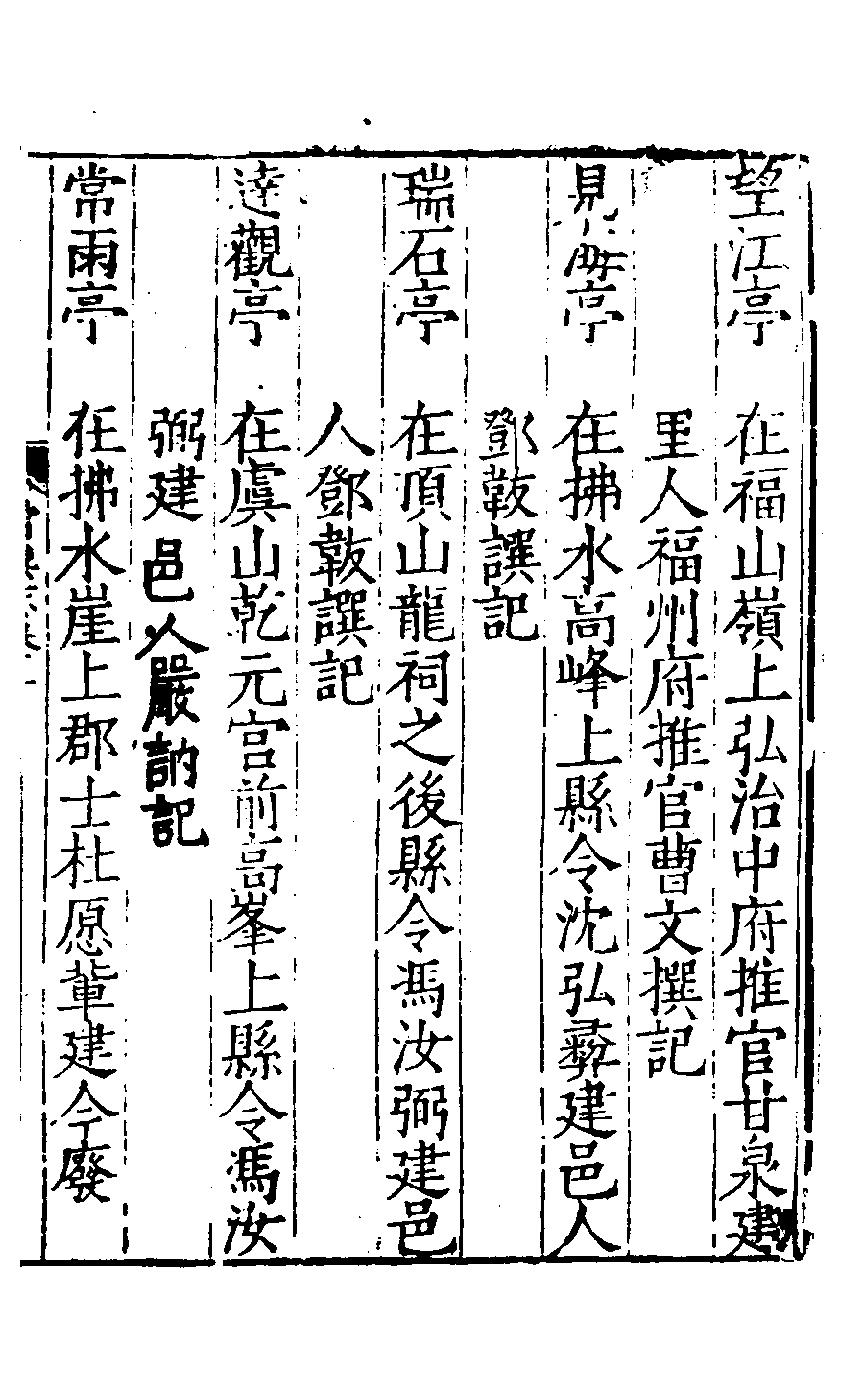 望江亭　在福山嶺上弘治中府推官甘泉建
里人福州府推官曹文撰記
見海亭　在拂水高峰上縣令沈弘彝建邑人
鄧韍譔記
瑞石亭　在頂山龍祠之後縣令馮汝弼建邑
人鄧韍譔記
達觀亭　在虞山乾元宮前高峯上縣令馮汝
弼建邑人嚴訥記
常雨亭　在拂水崖上郡士杜愿輩建今廢